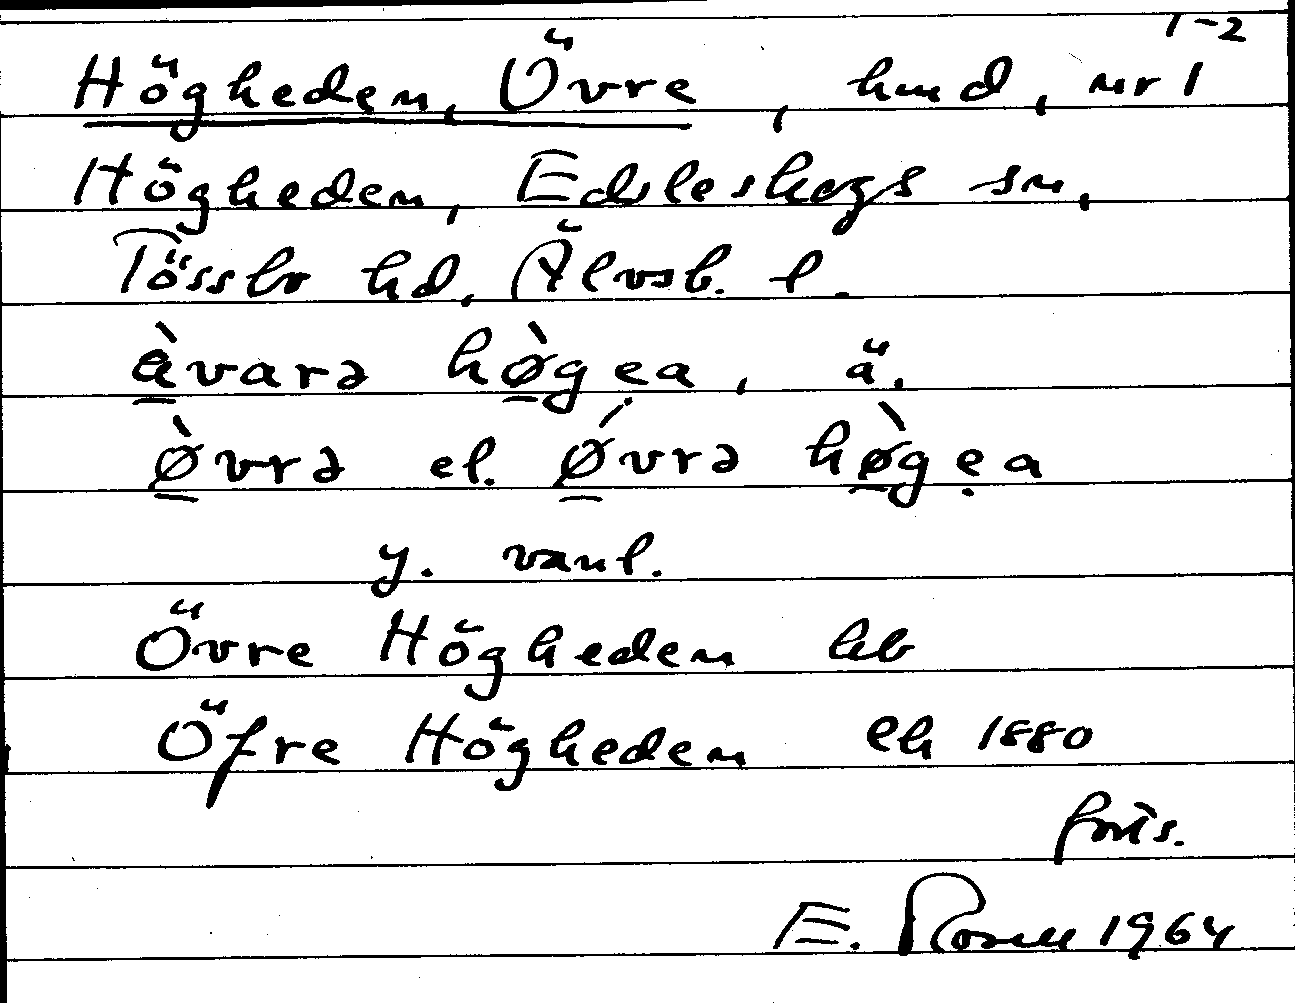 1-2
Högheden, Övre, hmd, nr 1
Högheden, Edsleskogs sn,
Tössbo hd, Älvsb. l.
à̲varə hø̲̀gẹa, ä.
ø̲̀vrə el. ǿ̲vrə hø̲̀gẹa
y. vanl.
Övre Högheden hb
Öfre Högheden ek 1880
forts.
E. Rosell 1964